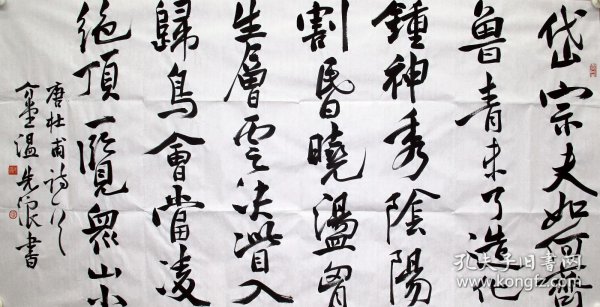 岱宗夫如何齊
魯青未了造化
鍾神秀陰陽
割昏曉盪胸
生層雲決眥入
歸鳥會當凌
絕頂一覽眾山小
唐杜甫詩一首
溫先書
孔夫子旧书网
www.kongfz.com